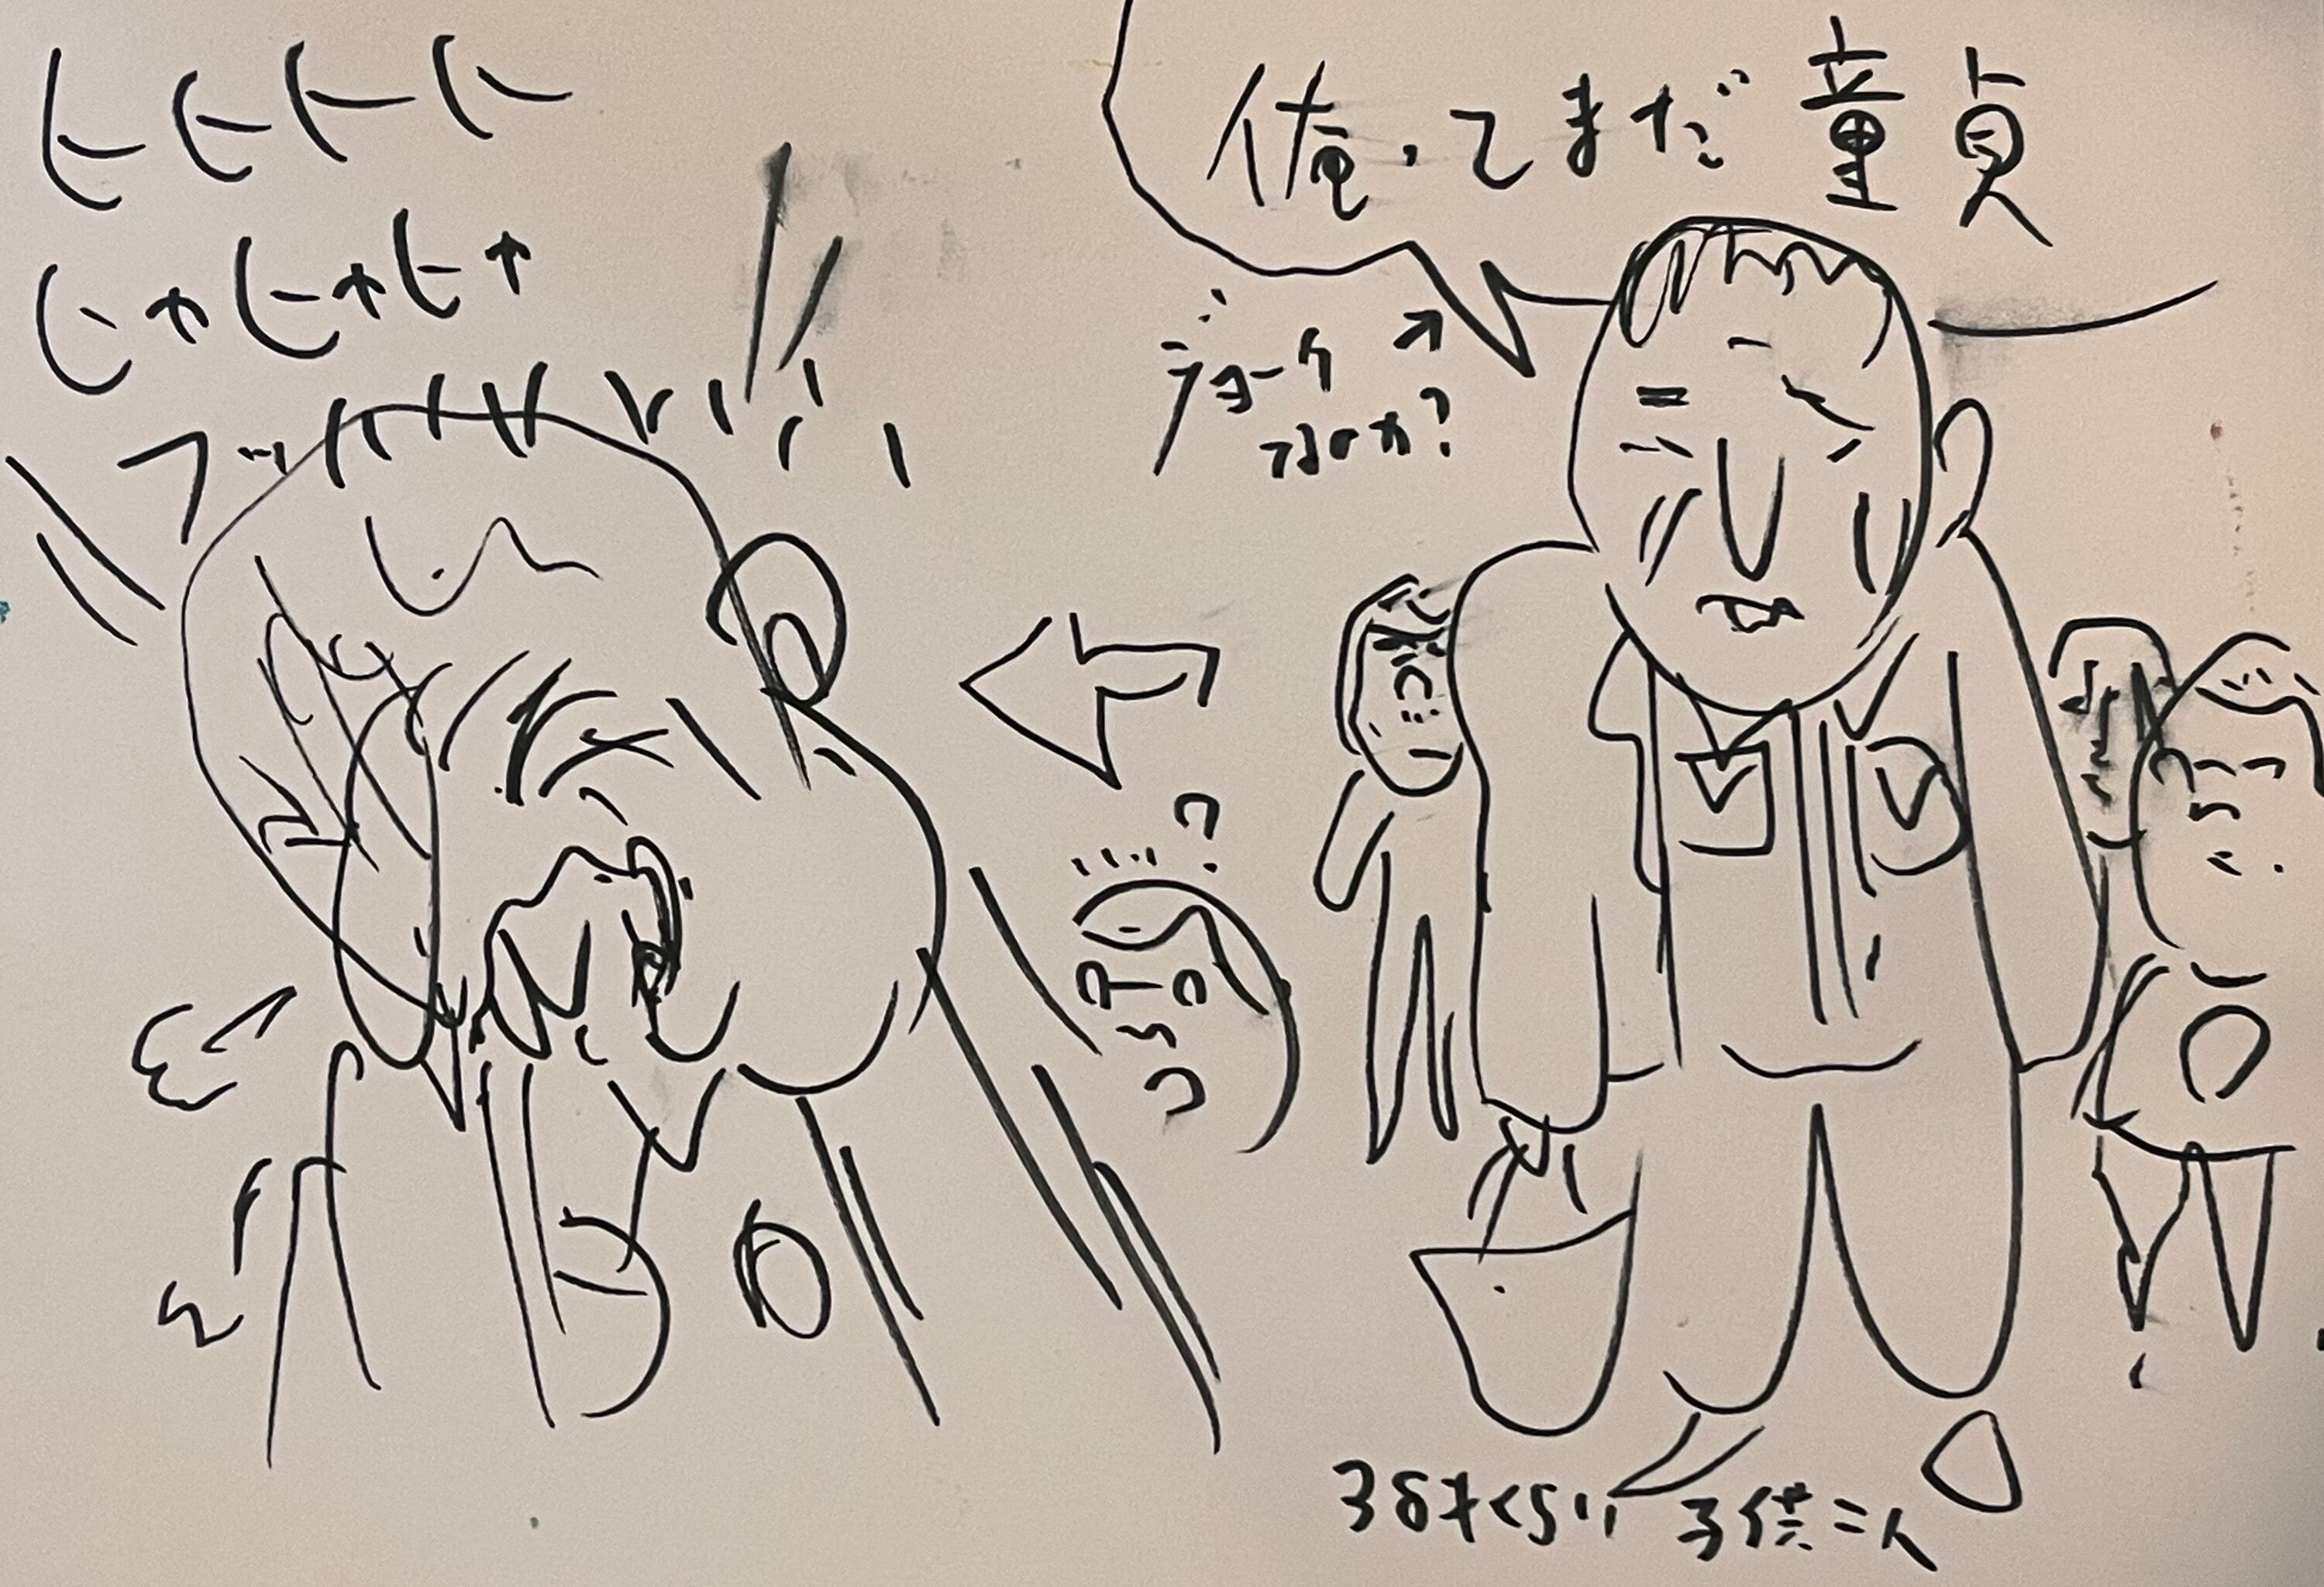 俺ってまだ童貞
ジョーク
ですか？
ヒヒヒヒ
ヒャヒャヒャ
フッ
36才くらい 子供二人